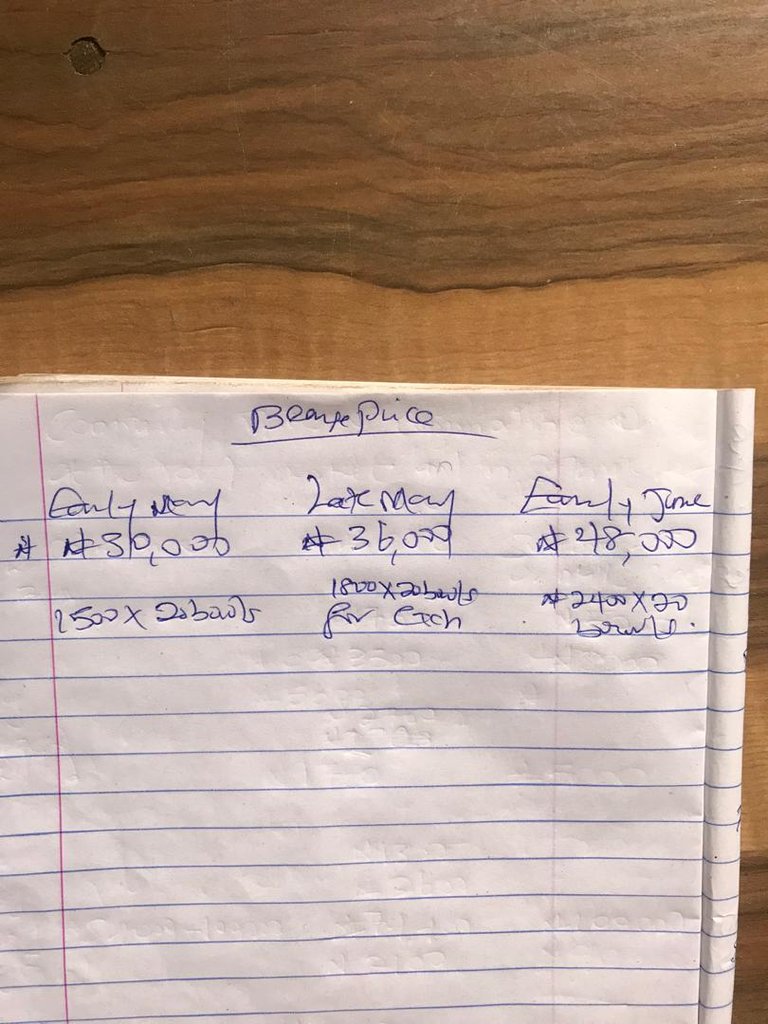 Beans price
Early May Late May Early June
₦ ₦30,000 ₦36,000 ₦48,000
1500 X 20bowls 1800X20bowls ₦2400X20
for Each bowls.